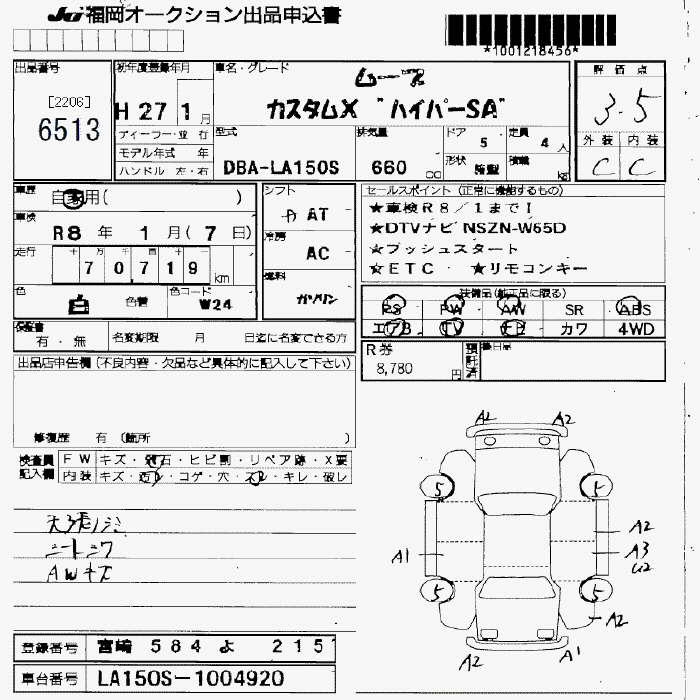 JU福岡オークション出品申込書
*1001218456*
出品番号
[2206]
6513
初年度登録年月
H 27 1月
ディーラー・並 行
モデル年式 年
ハンドル 左・右
車名・グレード
ムーブ
カスタムX "ハイパーSA"
型式
DBA-LA150S
排気量
660 cc
ドア 5
定員 4 人
形状 箱型
積載 kg
評価点
3.5
外装 内装
C C
車歴
自家用( )
車検
R8 年 1 月( 7 日)
走行
十 万 千 百 十 一
70719 km
色
白 色替
色コード
W24
シフト
AT
冷房
AC
燃料
ガソリン
セールスポイント (正常に機能するもの)
★車検R8/1までI
★DTVナビ NSZN-W65D
★プッシュスタート
★ETC ★リモコンキー
装備品(純正品に限る)
PS PW AW SR ABS
エアB TV ナビ カワ 4WD
保証書
有・無
名変期限 月 日迄に名変できる方
R券
8,780 円
預託済
後日品
出品店申告欄(不良内容・欠品など具体的に記入して下さい)
修復歴 有 (箇所 )
検査員
記入欄
FW キズ・飛石・ヒビ割・リペア跡・X要
内装 キズ・汚れ・コゲ・穴・スレ・キレ・破レ
シートシワ
AWキズ
A2 A2
5 5
A1
A2
A3
U2
5 5
A2
A2 A1
登録番号 宮崎 584 よ 2151
車台番号 LA150S-1004920